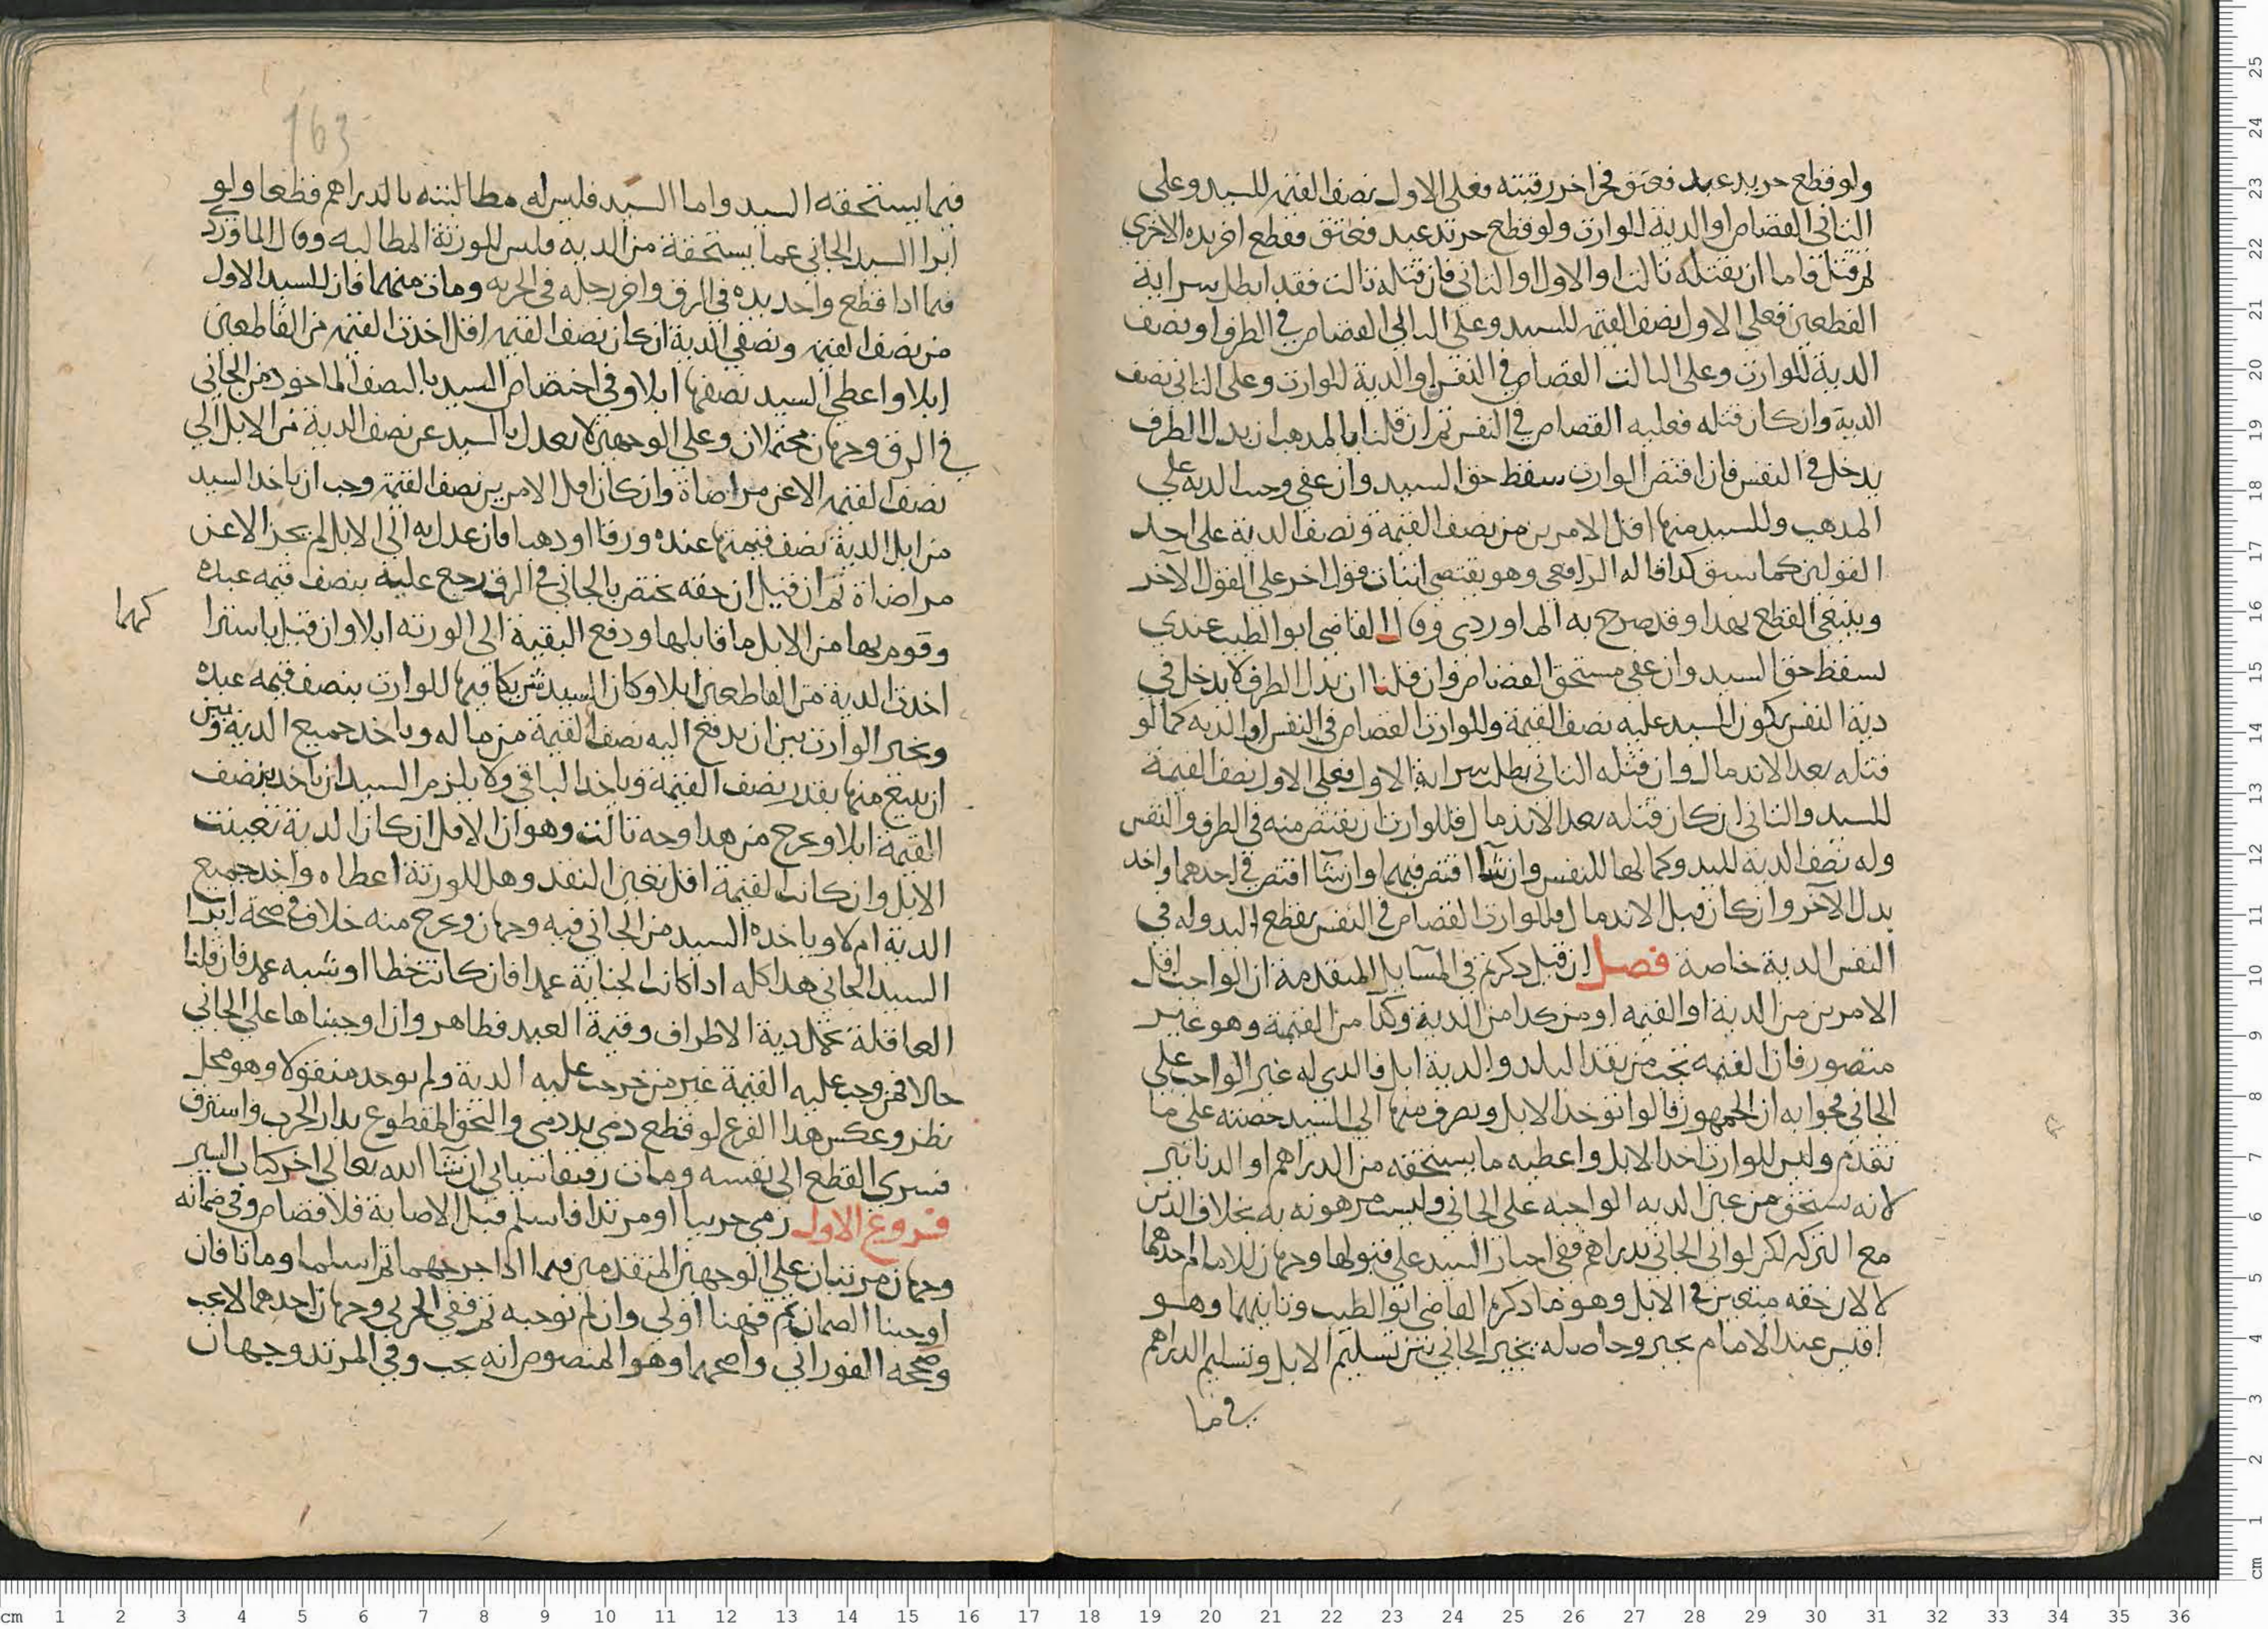 ولو قطع حر يد عبد فعتق فحز اخر رقبته فعلى الاول نصف القيمة للسيد وعلى
الثاني القصاص او الدية للوارث ولو قطع حر يد عبد فعتق فقطع اخر يده الاخرى
ثم قتل فاما ان يقتله ثالث او الاول او الثاني فان قتله ثالث فقد ابطل سراية
القطعين فعلى الاول نصف القيمة للسيد وعلى الثاني القصاص في الطرف او نصف
الدية للوارث وعلى الثالث القصاص في النفس او الدية للوارث وعلى الثاني نصف
الدية وان كان قتله فعليه القصاص في النفس ثم ان قلنا بالمذهب ان بدل الطرف
يدخل في النفس فان اقتص الوارث سقط حق السيد وان عفى وجبت الدية على
المذهب وللسيد منها اقل الامرين من نصف القيمة ونصف الدية على احد
القولين كما سبق كذا قاله الرافعي وهو يقتضي اثبات قول اخر على القول الآخر
وينبغي القطع بهذا وقد صرح به الماوردي وقال القاضي ابو الطيب عندي
يسقط حق السيد وان عفى مستحق القصاص وان قلنا ان بدل الطرف لا يدخل في
دية النفس يكون للسيد عليه نصف القيمة وللوارث القصاص في النفس او الدية كما لو
قتله بعد الاندمال وان قتله الثاني بطل سراية الاول فعلى الاول نصف القيمة
للسيد والثاني ان كان قتله بعد الاندمال فللوارث ان يقتص منه في الطرف والنفس
وله نصف الدية لليد وكمالها للنفس وان شا اقتص فيهما وان شآ اقتص في احدهما واخد
بدل الآخر وان كان قبل الاندمال فللوارث القصاص في النفس بقطع اليد وله في
النفس الدية خاصة فصل ان قيل ذكرتم في المسايل المتقدمة ان الواجب اقل
الامرين من الدية او القيمه او من كذا من الدية وكذا من القيمة وهو غير
متصور فان القيمه تجب من نقد البلد والدية ابل فالذي له غير الواجب على
الجاني فجوابه ان الجمهور قالوا تؤخذ الابل ويصرف منها الى السيد حصته على ما
تقدم وليس للوارث اخد الابل واعطيه ما يستحقه من الدراهم او الدنانير
لانه يستحق من عين الديه الواجبه على الجاني وليست مرهونه به بخلاف الدين
مع التركه لكن لو اتى الجاني بدراهم ففي اجبار السيد على قبولها وجهان للامام احدهما
لا لان حقه متعين في الابل وهو ما ذكره القاضي ابو الطيب وثانيهما وهو
اقيس عند الامام يجبر وحاصله تخيير الجاني بين تسليم الابل وتسليم الدراهم
فيما
163
فيما يستحقه السيد واما السيد فليس له مطالبته بالدراهم قطعا ولو
ابرا السيد الجاني عما يستحقه من الديه فليس للورثة المطالبه وقال الماوردي
فيما اذا قطع واحد يده في الرق واخر رجله في الحريه ومات منهما فان للسيد الاول
من نصف القيمه ونصفي الدية ان كان نصف القيمه اقل اخذت القيمه من القاطعين
ابلا واعطي السيد نصفها ابلا وفي اختصاص السيد بالنصف الماخوذ من الجاني
في الرق وجهان محتملان وعلى الوجهين لا يعدل بالسيد عن نصف الدية من الابل الى
نصف القيمه الا عن مراضاة وان كان اقل الامرين نصف القيمه وجب ان ياخذ السيد
من ابل الدية نصف قيمتها عنده ورقا او ذهبا فان عدل به الى الابل لم يجز الا عن
مراضاة ثم ان قيل ان حقه يختص بالجاني في الرق رجع عليه بنصف قيمه عبده
وقوم بها من الابل ما قابلها ودفع البقية الى الورثه ابلا وان قيل باشترا
كهما
اخذت الدية من القاطعين ابلا وكان السيد شريكا فيها للوارث بنصف قيمه عبده
ويخير الوارث بين ان يدفع اليه نصف القيمة من ماله وياخد جميع الدية وبين
ان يبيع منها بقدر نصف القيمة وياخذ الباقي ولا يلزم السيد ان ياخذ بنصف
القيمة ابلا ويخرج من هذا وجه ثالث وهو ان الاقل ان كان الدية تعينت
الابل وان كانت القيمة اقل تعين النقد وهل للورثة اعطاه واخذ جميع
الدية ام لا وياخذه السيد من الجاني فيه وجهان ويخرج منه خلاف في صحة ابرا
السيد الجاني هذا كله اذا كانت الجناية عمدا فان كانت خطا او شبه عمد فان قلنا
العاقلة تحمل دية الاطراف وقيمة العبد فظاهر وان اوجبناها على الجاني
حالا فمن وجب عليه القيمة غير من خرجت عليه الدية ولم يوجد منقولا وهو محل
نظر وعكس هذا الفرع لو قطع ذمي يد ذمي والتحق المقطوع بدار الحرب واسترق
فسرى القطع الى نفسه ومات رقيقا سياتي ان شآ الله تعالى اخر كتاب السير
فروع الاول رمى حربيا او مرتدا فاسلم قبل الاصابة فلا قصاص وفي ضمانه
وجهان مرتبان على الوجهين المتقدمين فيما اذا جرحهما ثم اسلما وماتا فان
اوجبنا الضمان ثم فهنا اولى وان لم نوجبه ثم ففي الحربي وجهان احدهما لا يجب
وصححه الفوراني واصحهما وهو المنصوص انه يجب وفي المرتد وجهان